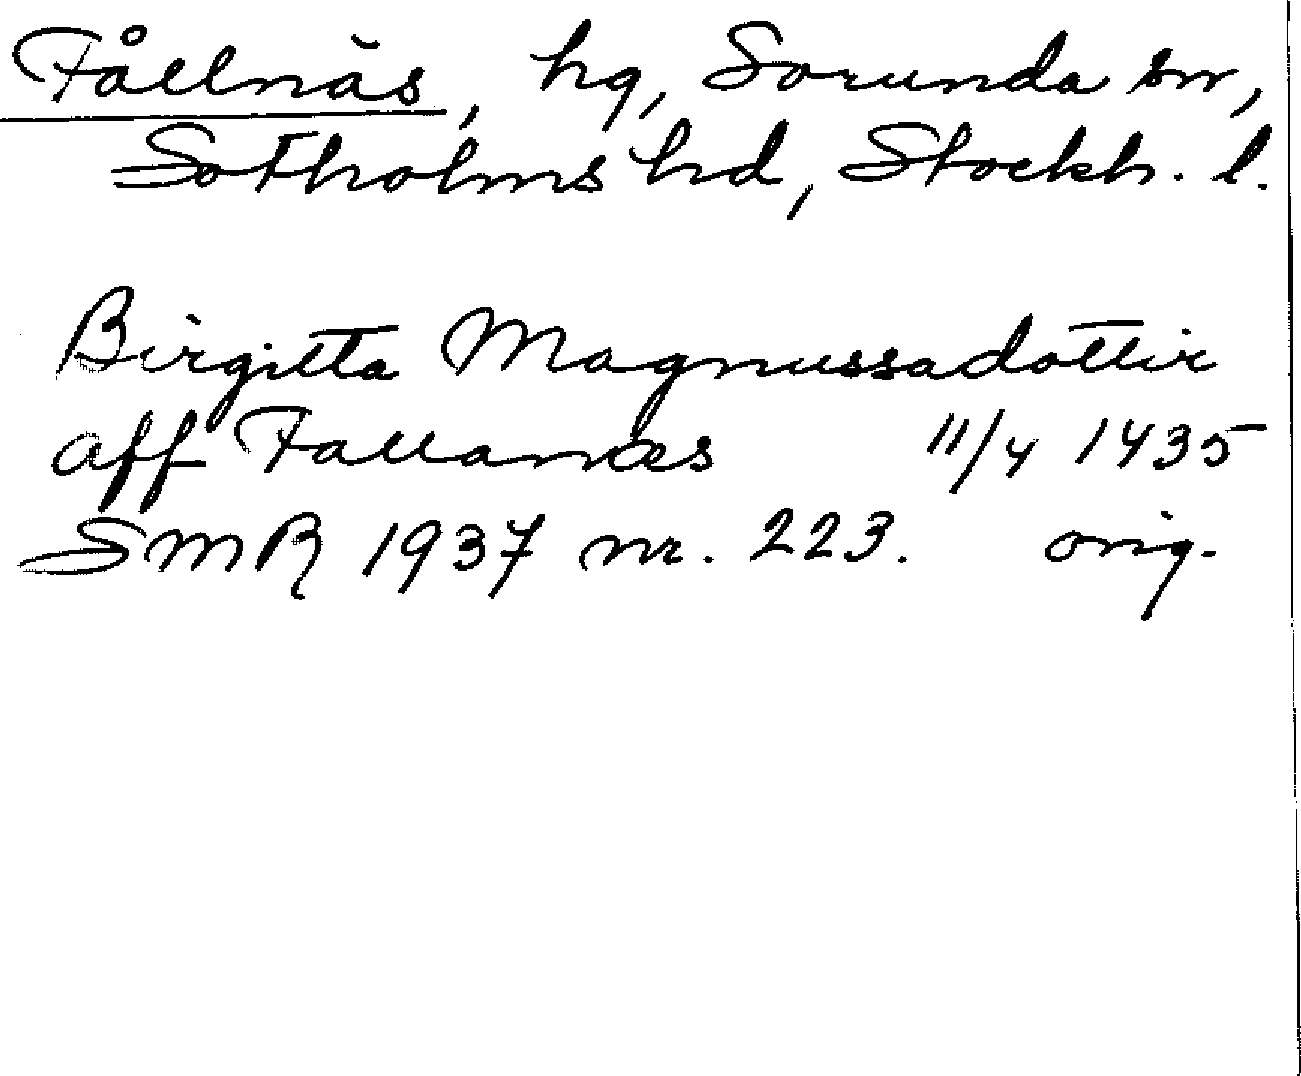 Fållnäs, hg, Sorunda sn,
Sotholms hd, Stockh. l.
Birgitta Magnussadottir
aff Fallanæs 11/4 1435
SMR 1937 nr. 223. orig.